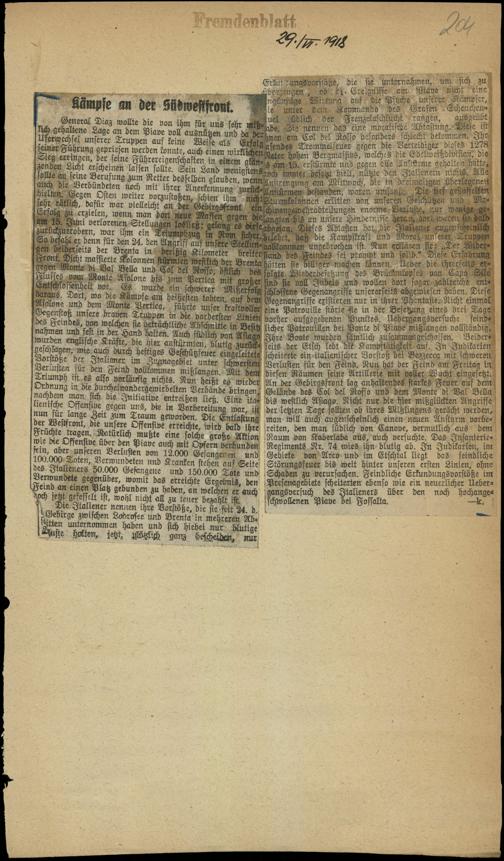 Fremdenblatt
29./VI. 1918
204
Kämpfe an der Südwestfront.
General Diaz wollte die von ihm für uns sehr miß-
lich gehaltene Lage am Piave voll ausnützen und da der
Uferwechsel unserer Truppen auf seine Weise als Erfolg
seiner Führung gepriesen werden konnte, auch einen wirklichen
Sieg erringen, der seine Führereigenschaften in einem glän-
zenden Licht erscheinen lassen sollte. Sein Land wenigstens
sollte an seine Berufung zum Retter desselben glauben, wenn
auch die Verbündeten noch mit ihrer Anerkennung zurück-
hielten. Gegen Osten weiter vorzustoßen, schien ihm nicht
sehr rätlich, dafür war vielleicht an der Gebirgsfront ein
Erfolg zu erzielen, wenn man dort neue Massen gegen die
am 15. Juni verlorenen Stellungen losließ; gelang es diese
zurückzuerobern, war ihm ein Triumphzug in Rom sicher.
So befahl er denn für den 24. den Angriff auf unsere Stellun-
gen beiderseits der Brenta in dreißig Kilometer breiter
Front. Dicht massierte Kolonnen stürmten westlich der Brenta
gegen Monte di Val Bella und Col del Rosso, östlich des
Flusses vom Monte Asolone bis zum Pertica mit großer
Entschlossenheit vor. Es wurde ein schwerer Mißerfolg
daraus. Dort, wo die Kämpfe am heißesten tobten, auf dem
Asolone und dem Monte Pertica, führte unser kraftvoller
Gegenstoß unsere braven Truppen in die vordersten Linien
des Feindes, von welchen sie beträchtliche Abschnitte in Besitz
nahmen und fest in der Hand halten. Auch südlich von Asiago
wurden englische Kräfte, die hier anstürmten, blutig zurück-
geschlagen, wie auch durch heftiges Geschützfeuer eingeleitete
Vorstöße der Italiener im Zugnagebiet unter schwersten
Verlusten für den Feind vollkommen mißlangen. Mit dem
Triumph ist es also vorläufig nichts. Nun heißt es wieder
Ordnung in die durcheinandergewirbelten Verbände bringen,
nachdem man sich die Initiative entreißen ließ. Eine ita-
lienische Offensive gegen uns, die in Vorbereitung war, ist
nun für lange Zeit zum Traum geworden. Die Entlastung
der Westfront, die unsere Offensive erreichte, wird bald ihre
Früchte tragen. Natürlich mußte eine solche große Aktion
wie die Offensive über den Piave auch mit Opfern verbunden
sein, aber unseren Verlusten von 12.000 Gefangenen und
100.000 Toten, Verwundeten und Kranken stehen auf Seite
des Italieners 50.000 Gefangene und 150.000 Tote und
Verwundete gegenüber, womit das erreichte Ergebnis, den
Feind an einen Platz gebunden zu haben, an welchen er auch
noch jetzt gefesselt ist, wohl nicht all zu teuer bezahlt ist.
Die Italiener nennen ihre Vorstöße, die sie seit 24. d.
Gebirge zwischen und Brenta in mehreren Ab-
unternommen haben und sich hiebei nur blutige
holten, jetzt, plötzlich ganz bescheiden, nur
Erkundungsvorstöße, die sie unternahmen, um sich zu
überzeugen, ob die Ereignisse am Piave nicht eine
ungünstige Wirkung auf die Psyche unserer Kämpfer,
die unter dem Kommando des Grafen Scheuchen-
stuel südlich der Frenzelaschlucht rangen, ausgeübt
habe. Sie nennen das eine moralische Abtastung. Die ist
ihnen am Col del Rosso besonders schlecht bekommen. Ihr
rasendes Trommelfeuer gegen die Verteidiger dieses 1276
Meter hohen Bergmassivs, welches die Edelweißdivision, die
es am 15. erstürmte und gegen alle Anstürme gehalten hatte,
noch immer besetzt hielt, nützte den Italienern nichts. Alle
Anstrengungen am Mittwoch, die in dreimaligen
nahmen erhielten
Sturmkolonnen erlitten von unseren Geschützen und Ma-
schinengewehrabteilungen enorme Verluste, nur wenige ge-
langten bis zu unseren Hindernissen
Dieses Abtasten hat die Italiener augenscheinlich
belehrt, daß die Kampfkraft und Moral unserer Truppen
vollkommen ungebrochen ist. Nun erklären sie: „Der Wider-
stand des Feindes ist prompt und solid." Diese Erfahrung
hätten sie billiger machen können. Ueber die angeblich er-
folgte Wiederbesetzung des Brückenkopfes von Capo Sile
sind sie voll Jubels und wollen dort sogar zahlreiche ent-
schlossene Gegenangriffe unsererseits abgewiesen haben. Diese
Gegenangriffe existierten nur in ihrer Phantasie. Nicht einmal
eine Patrouille störte sie in der Besetzung eines drei Tage
vorher aufgegebenen Punktes. Uebergangsversuche feind-
licher Patrouillen bei Ponte di Piave mißlangen vollständig.
Ihre Boote wurden sämtlich zusammengeschossen. Beider-
seits der Etsch lebt die Kampftätigkeit auf. In Judikarien
scheiterte ein italienischer Vorstoß bei Bezzecca mit schweren
Verlusten für den Feind. Nun hat der Feind am Freitag in
diesen Räumen seine Artillerie mit voller Wucht eingesetzt.
An der Gebirgsfront lag anhaltendes starkes Feuer auf dem
Gelände des Col del Rosso und dem Monte di Val Bella
bis westlich Asiago. Nicht nur die hier mißglückten Angriffe
der letzten Tage sollten ob ihres Mißlingens gerächt werden,
man will auch augenscheinlich einen neuen Ansturm vorbe-
reiten, den man südlich von Canove, vermutlich aus dem
Raum von Kaberlaba aus, auch versuchte. Das Infanterie-
Regiments Nr. 74 wies ihn blutig ab. In Judikarien, im
Gebiete von Arco und im Etschtal liegt das feindliche
Störungsfeuer bis weit hinter unseren ersten Linien, ohne
Schaden zu verursachen. Feindliche Erkundungsvorstöße im
Presenagebiet scheiterten ebenso wie ein neuerlicher Ueber-
gangsversuch des Italieners über den noch hochange-
schwollenen Piave bei Fossalta. —k.